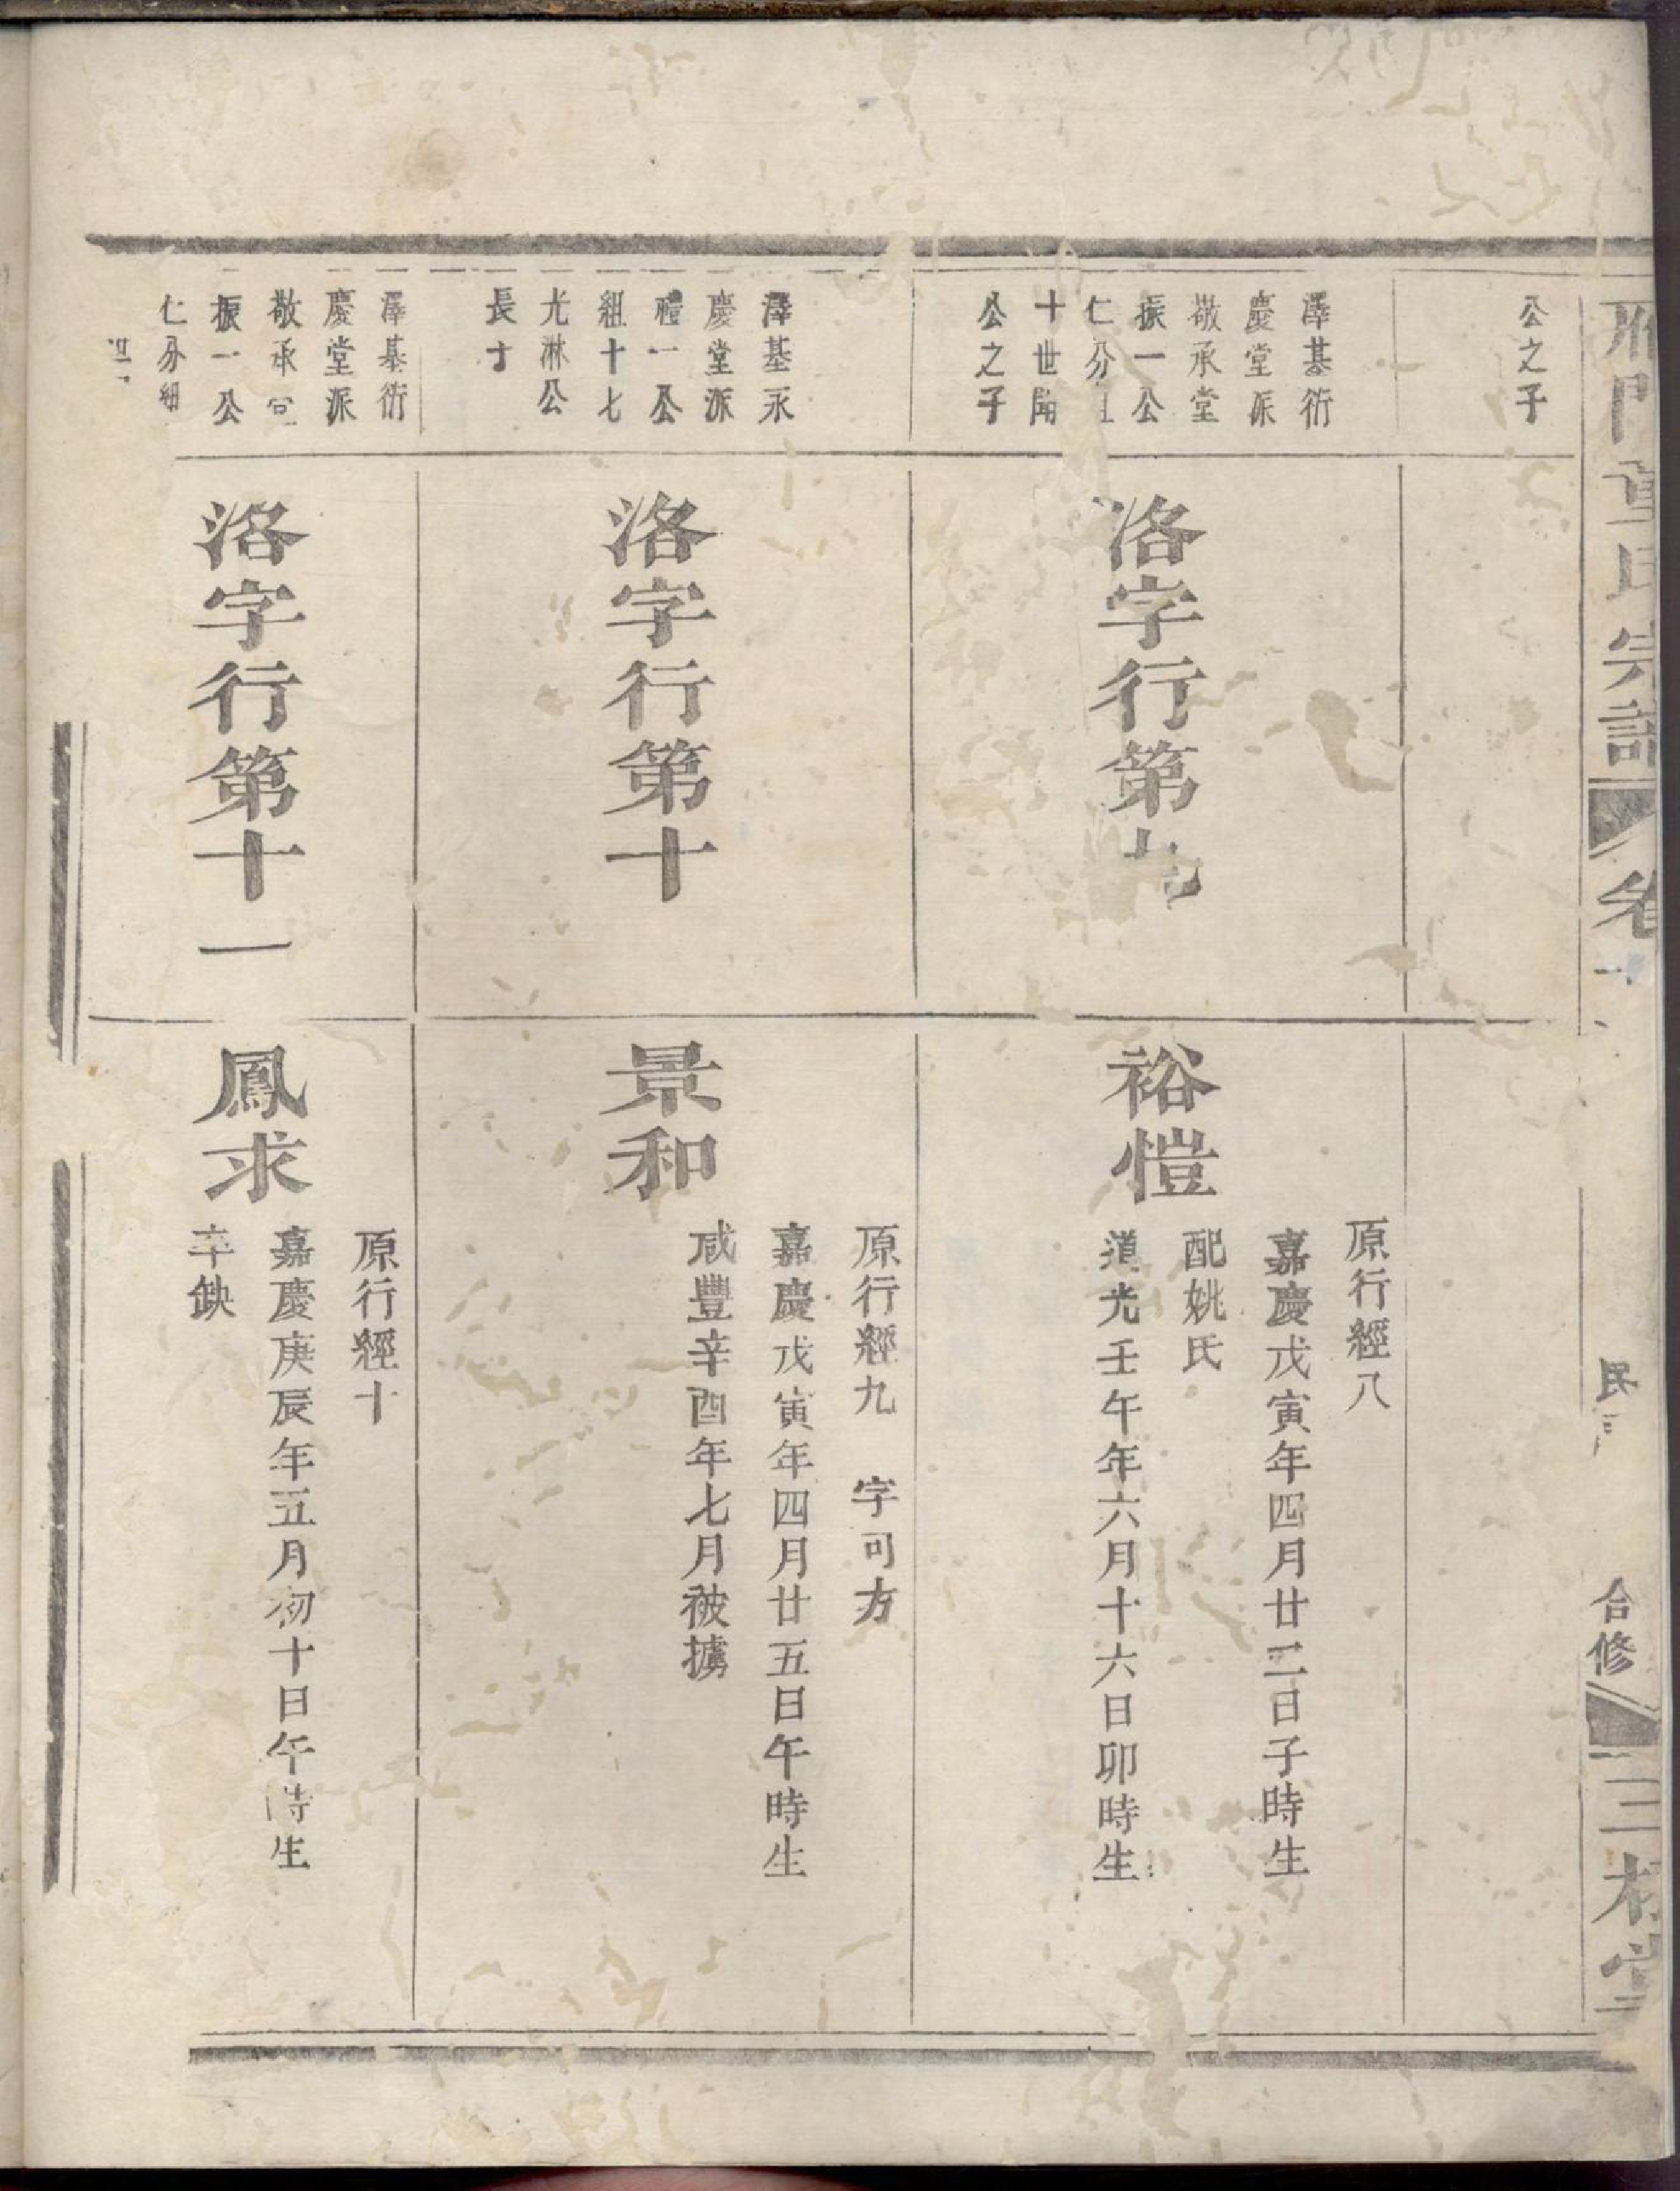 雁門童氏宗譜
卷一
民
合修
三楨堂
公之子
澤基衍
慶堂派
敬承堂
振一公
仁分
十世
公之子
洛字行第九
裕愷
原行經八
嘉慶戊寅年四月廿二日子時生
配姚氏
道光壬午年六月十六日卯時生
澤基永
慶堂派
禮一公
組十七
光淋公
長子
洛字行第十
景和
原行經九 字可方
嘉慶戊寅年四月廿五日午時生
咸豐辛酉年七月被擄
澤基衍
慶堂派
敬承
振一公
仁分
洛字行第十一
鳳求
原行經十
嘉慶庚辰年五月初十日午時生
卒缺